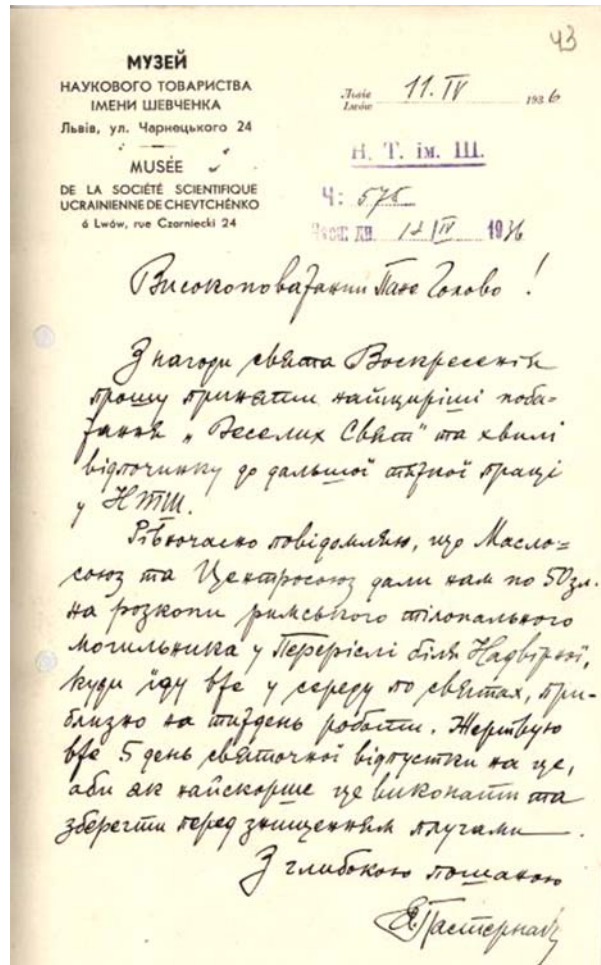 43
МУЗЕЙ
НАУКОВОГО ТОВАРИСТВА
ІМЕНИ ШЕВЧЕНКА
Львів, ул. Чарнецького 24
MUSÉE
DE LA SOCIÉTÉ SCIENTIFIQUE
UCRAINIENNE DE CHEVTCHÉNKO
á Lwów, rue Czarniecki 24
Львів
Lwów 11. IV 1936
Н. Т. ім. Ш.
Ч: 575
дн. 12 IV 1936
Високоповажаний Пане Голово!
З нагоди свята Воскресення
прошу приняти найщиріші поба-
жання „Веселих Свят" та хвилі
відпочинку до дальшої тяжкої праці
у НТШ.
Рівночасно повідомляю, що Масло=
союз та Центросоюз дали нам по 50 зл.
на розкопи римського тілопального
могильника у Перерослі біля Надвірної,
куди їду вже у середу по святах, при-
близно на тиждень роботи. Жертвую
вже 5 день святочної відпустки на це,
аби як найскорше це виконати та
зберегти перед знищенням плугами.
З глибокою пошаною
Я. Пастернак